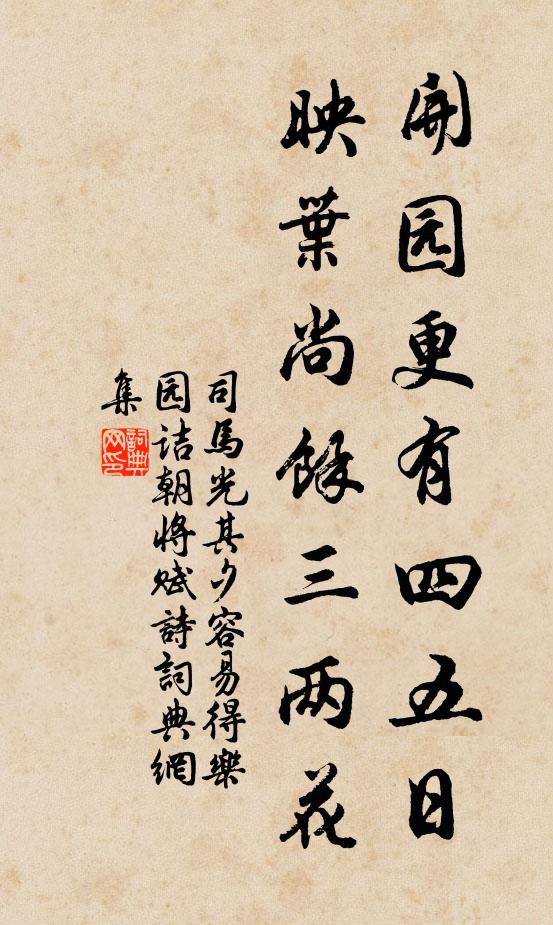 開园更有四五日
映葉尚餘三两花
司馬光其夕容易得樂
园诘朝将赋詩詞典網
集
詞典网印